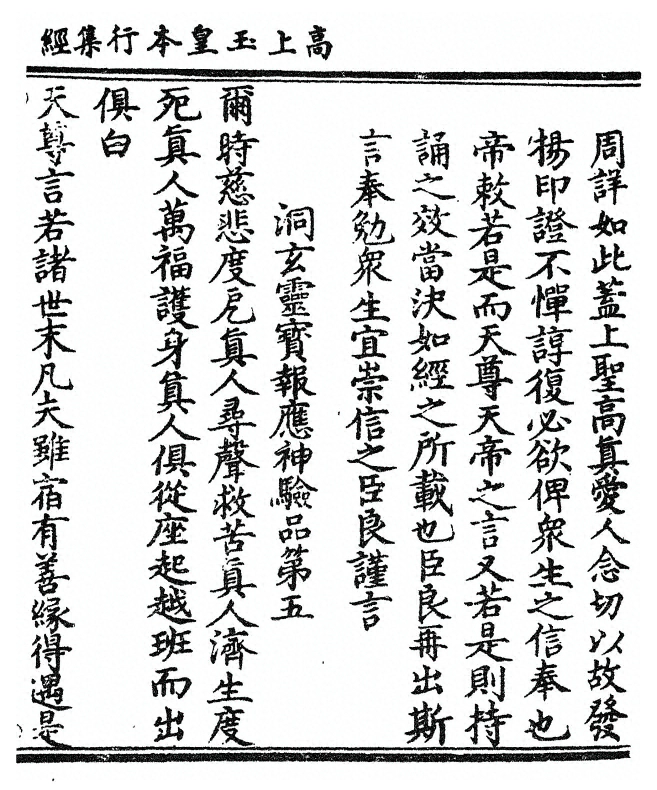 高上玉皇本行集經
周詳如此蓋上聖高眞愛人念切以故發
揚印證不憚諄復必欲俾衆生之信奉也
帝敕若是而天尊天帝之言又若是則持
誦之效當決如經之所載也臣良再出斯
言奉勉衆生宜崇信之臣良謹言
洞玄靈寶報應神驗品第五
爾時慈悲度厄眞人尋聲救苦眞人濟生度
死眞人萬福護身眞人俱從座起越班而出
俱白
天尊言若諸世末凡夫雖宿有善緣得遇是